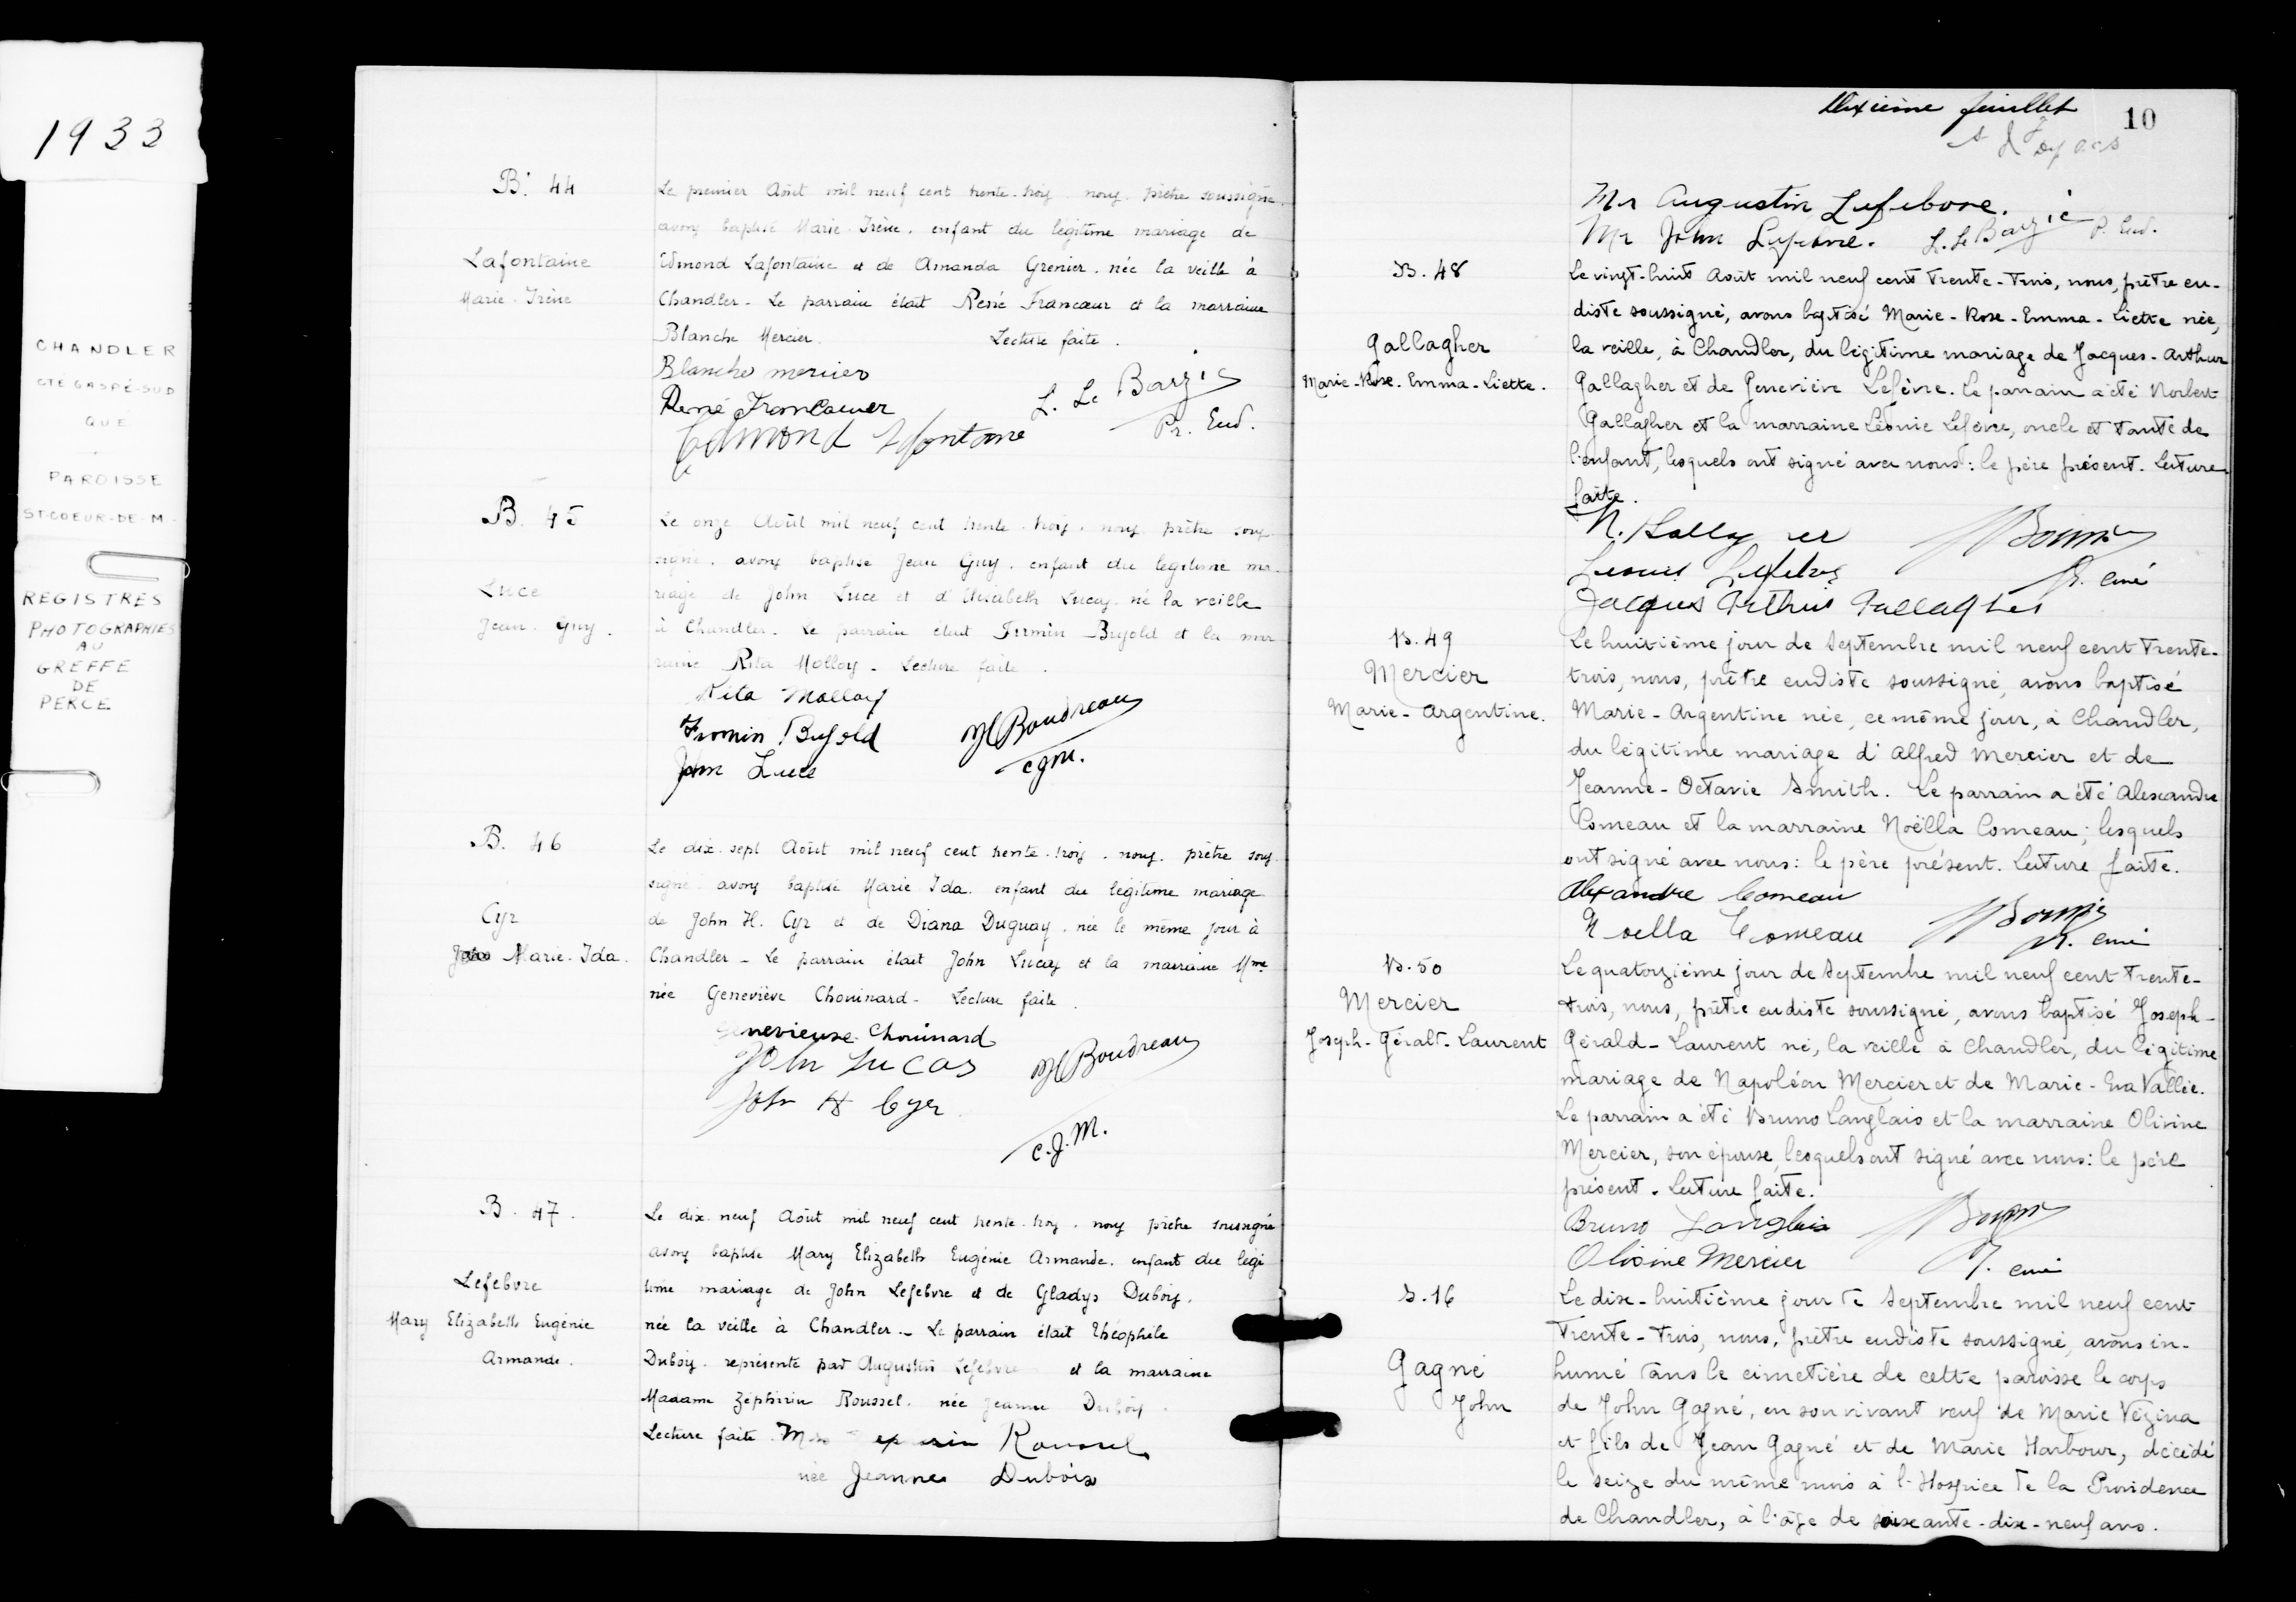 1933
CHANDLER
CTÉ GASPÉ-SUD
QUE
PAROISSE
ST-COEUR-DE-M.
REGISTRES
PHOTOGRAPHIES
AU
GREFFE
DE
PERCE
B. 44
Lafontaine
Marie-Irène
Le premier Août mil neuf cent trente-trois, nous, prêtre soussigné,
avons baptisé Marie-Irène, enfant du légitime mariage de
Edmond Lafontaine et de Amanda Grenier, née la veille à
Chandler - Le parrain était René Francoeur et la marraine
Blanche Mercier. Lecture faite.
Blanche mercier
René Francoeur
L. Le Barzic
Pr. Eud.
Edmond Lafontaine
B. 45
Luce
Jean-Guy.
Le onze Août mil neuf cent trente-trois, nous, prêtre sous
signé, avons baptisé Jean Guy, enfant du légitime ma-
riage de John Luce et d'Elisabeth Lucas, né la veille
à Chandler. Le parrain était Firmin Bujold et la mar
raine Rita Molloy - Lecture faite.
Rita Molloy
Firmin Bujold
John Luce
Boudreau
c.j.m.
B. 46
Cyr
Marie-Ida.
Le dix-sept Août mil neuf cent trente-trois, nous, prêtre sous
signé, avons baptisé Marie Ida, enfant du légitime mariage
de John H. Cyr et de Diana Duguay, née le même jour à
Chandler - Le parrain était John Lucas et la marraine Mme
née Geneviève Chouinard - Lecture faite.
Genevieuse Chouinard
John Lucas
John H Cyr
Boudreau
c.j.m.
B. 47.
Lefebvre
Mary Elizabeth Eugénie
Armande.
Le dix-neuf Août mil neuf cent trente-trois, nous prêtre soussigné
avons baptisé Mary Elizabeth Eugénie Armande, enfant du légi
time mariage de John Lefebvre et de Gladys Dubois,
née la veille à Chandler. - Le parrain était Théophile
Dubois, représenté par Augustin Lefebvre et la marraine
Madame Zéphirin Roussel, née Jeanne Dubois.
Lecture faite. Roussel
née Jeanne Dubois
dixième feuillet
10
Mr Augustin Lefebvre.
Mr John Lefebvre. L. Le Barzic P. Eud.
B. 48
Gallagher
Marie-Rose-Emma-Liette.
Le vingt-huit Août mil neuf cent trente-trois, nous, prêtre eu-
diste soussigné, avons baptisé Marie-Rose-Emma-Liette née,
la veille, à Chandler, du légitime mariage de Jacques-Arthur
Gallagher et de Geneviève Lefèvre. Le parrain a été Norbert
Gallagher et la marraine Léonie Lefèvre, oncle et tante de
l'enfant, lesquels ont signé avec nous: le père présent. Lecture
faite.
N. Gallagher
Leonie Lefebvre
Jacques Arthur Gallagher
curé
B. 49
Mercier
Marie-Argentine.
Le huitième jour de Septembre mil neuf cent trente-
trois, nous, prêtre eudiste soussigné, avons baptisé
Marie-Argentine née, ce même jour, à Chandler,
du légitime mariage d'Alfred Mercier et de
Jeanne-Octavie Smith. Le parrain a été Alexandre
Comeau et la marraine Noëlla Comeau; lesquels
ont signé avec nous: le père présent. Lecture faite.
Alexandre Comeau
Noella Comeau
curé
B. 50
Mercier
Joseph-Gérald-Laurent
Le quatorzième jour de Septembre mil neuf cent trente-
trois, nous, prêtre eudiste soussigné, avons baptisé Joseph-
Gérald-Laurent né, la veille à Chandler, du légitime
mariage de Napoléon Mercier et de Marie-Eva Vallée.
Le parrain a été Bruno Langlais et la marraine Olivine
Mercier, son épouse, lesquels ont signé avec nous: le père
présent. Lecture faite.
Bruno Langlais
Olivine Mercier
curé
S. 16
Gagné
John
Le dix-huitième jour de Septembre mil neuf cent
trente-trois, nous, prêtre eudiste soussigné, avons in-
humé dans le cimetière de cette paroisse le corps
de John Gagné, en son vivant veuf de Marie Vézina
et fils de Jean Gagné et de Marie Harbour, décédé
le seize du même mois à l'Hospice de la Providence
de Chandler, à l'âge de soixante-dix-neuf ans.